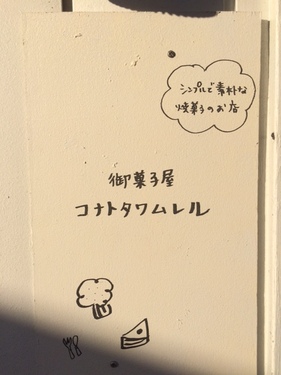 シンプルで素朴な
焼菓子のお店
御菓子屋
コナトタワムレル